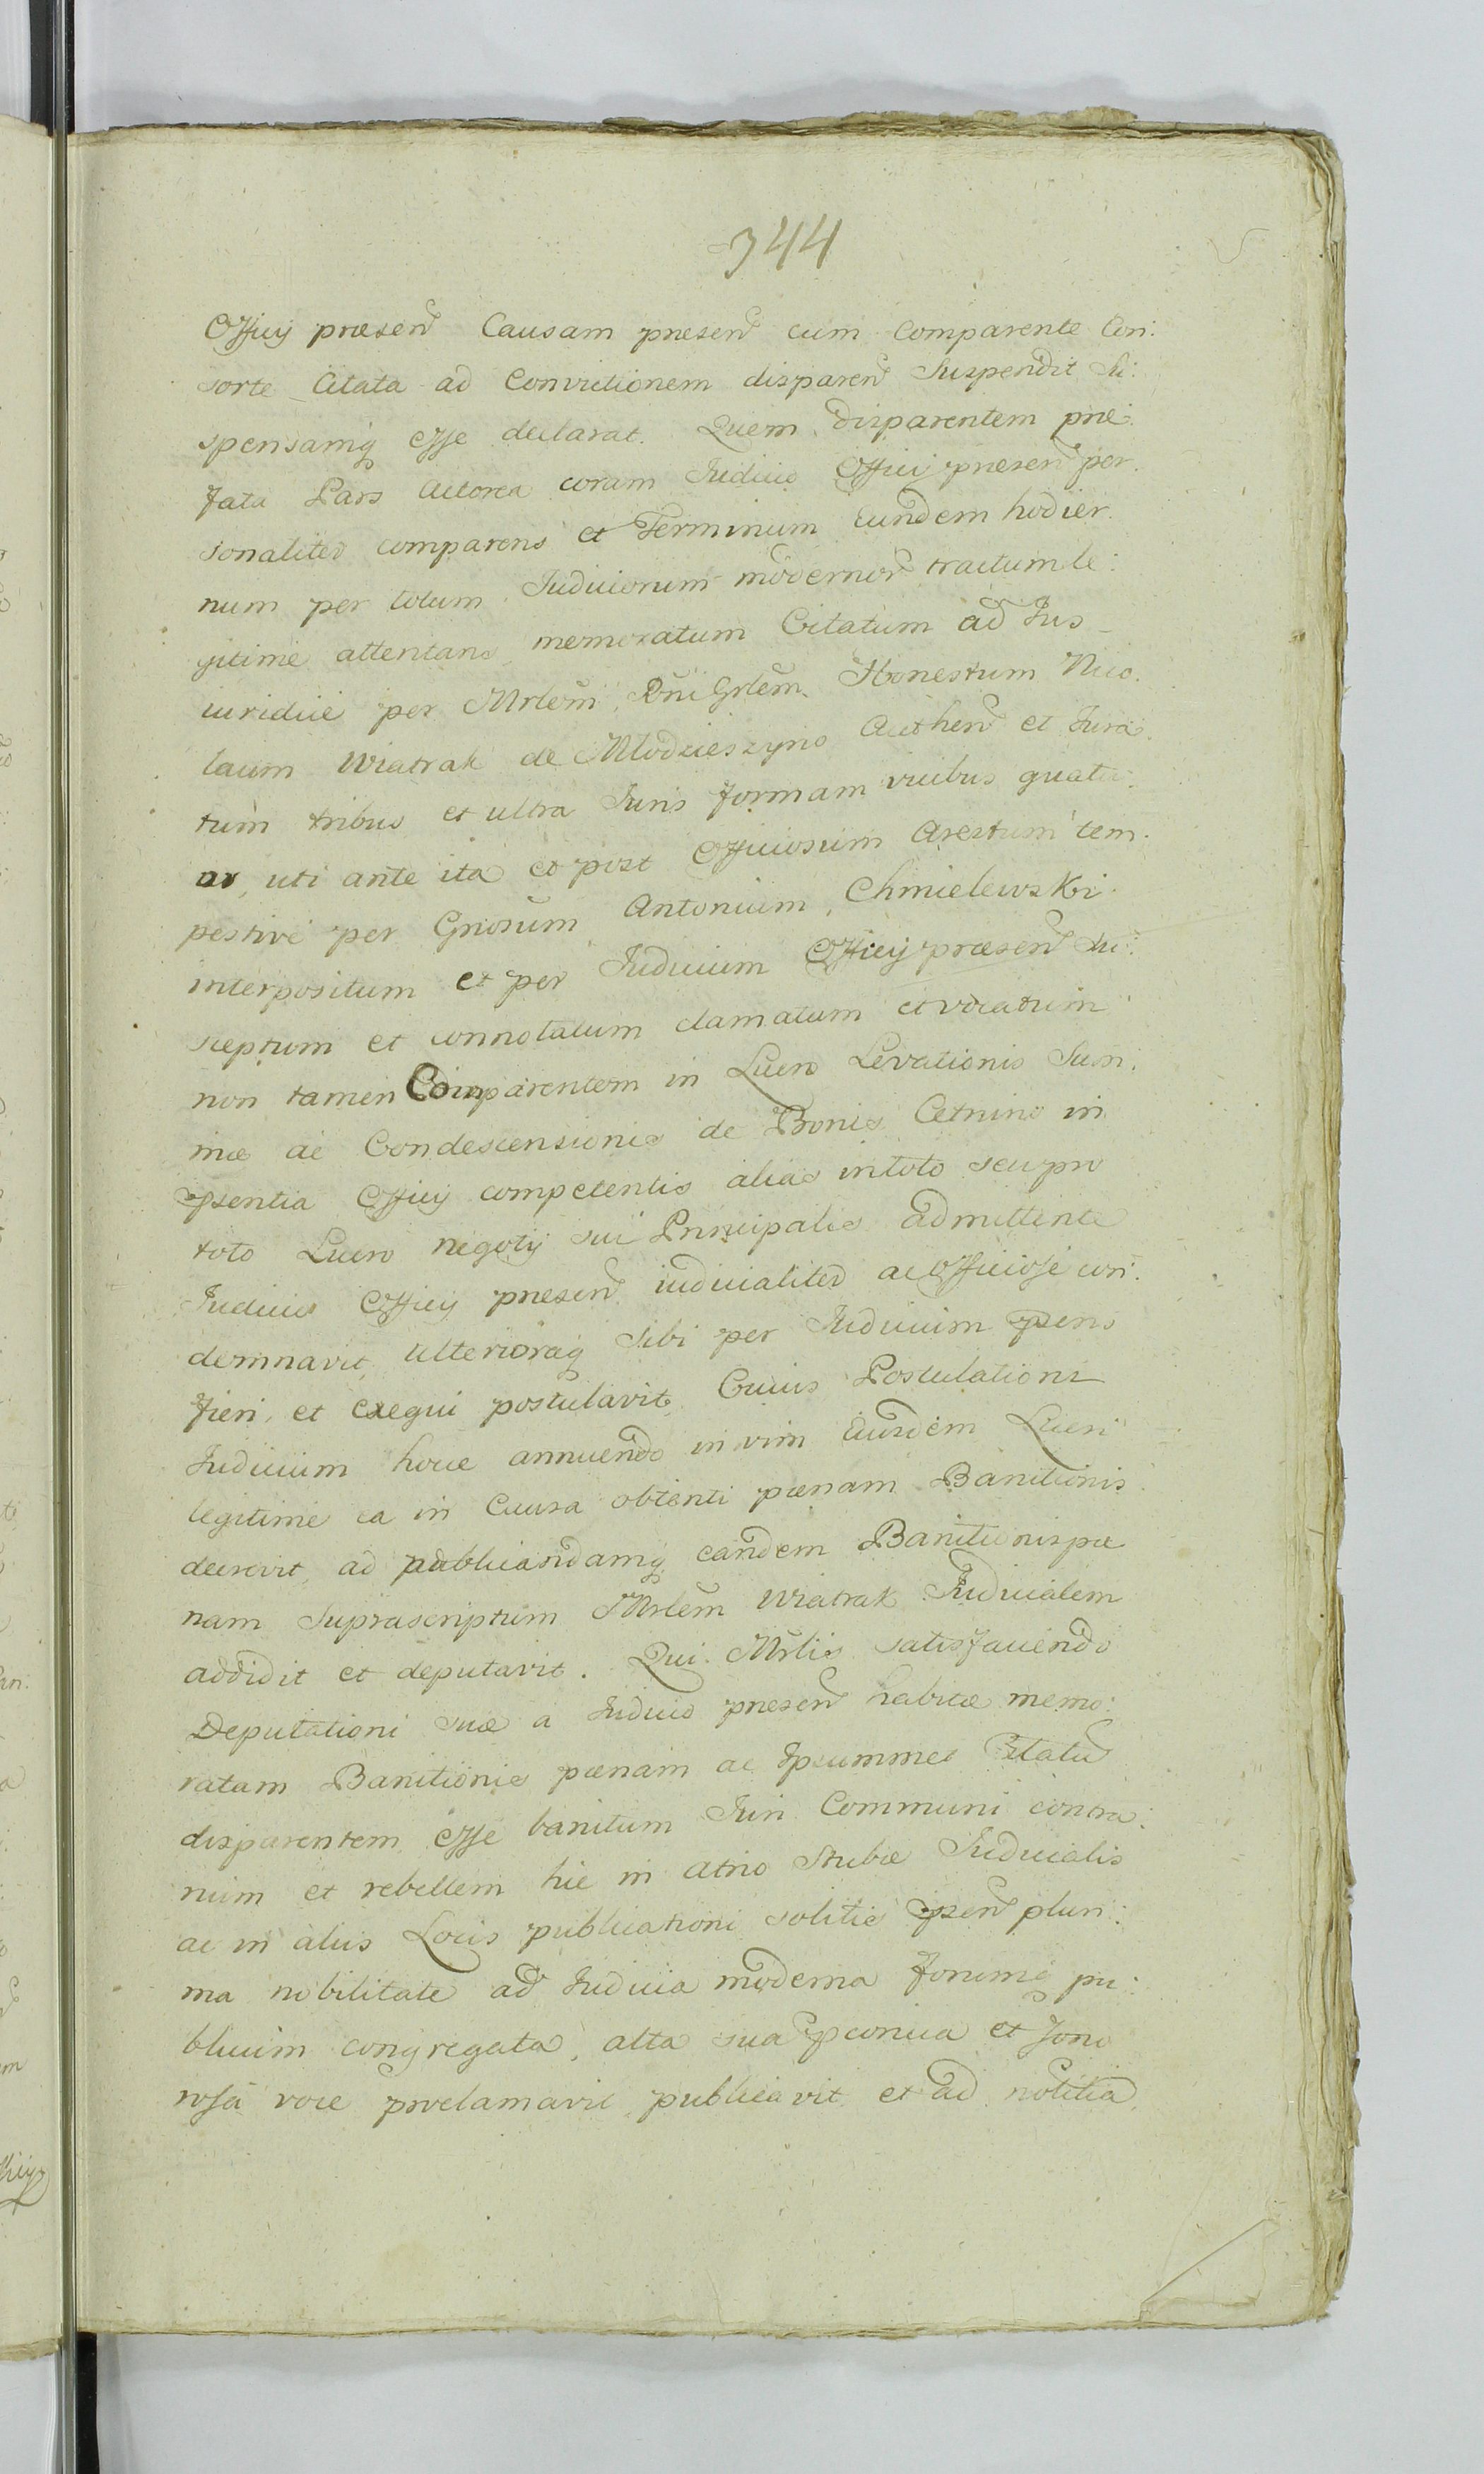 344
Officij præsen Causam præsen cum Comparente Con:
sorte Citata ad Convictionem disparen Suspendit Su:
spensamq esse declarat. Quem disparentem præ:
fata Pars Actorea coram Judicio Officij præsen per:
sonaliter comparens et Terminum Eundem hodier:
num per totum Judiciorum modernor tractum le:
gitime attentans memoratum Citatum ad Jus
iuridice per Mrlem Rni Grlem Honestum Nico:
laum Wiatrak de Młodzieszyno Authen et Jura:
tum tribus et ultra Juris formam vicibus quatu:
or, uti ante ita et post Officiosum Arestum tem:
pestive per Gnosum Antonium Chmielewski
interpositum et per Judicium Officij præsen Su:
sceptum et connotatum clamatum et vocatum
non tamen Comparentem in Lucro Levationis Sum:
mæ ac Condescensionis de Bonis Cetnino in
psentia Officij competentis alias in toto seu pro
toto Lucro negotij sui Principalis admittente
Judicio Officij præsen iudicialiter ac Officiose con:
demnavit, ulterioraq Sibi per Judicium psens
fieri et exequi postulavit Cuius Postulationi
Judicium hocce annuendo in vim Eiusdem Lucri
legitime ea in Causa obtenti pænam Banitionis
decrevit, ad publicandamq eandem Banitionis pæ
nam Suprascriptum Mrlem Wiatrak Judicialem
addidit et deputavit. Qui Mrlis satisfaciendo
Deputationi suæ a Judicio præsen habitæ memo:
ratam Banitionis pænam ac Ipsummet Citatu
disparentem esse banitum Juri Communi contra:
rium et rebellem hic in atrio Stubæ Judicialis
ac in alijs Locis publicationi solitis psen pluri:
ma nobilitate ad Judicia moderna forumq pu:
blicum congregata, alta sua pconica et sono
rosa voce proclamavit publicavit et ad notitia